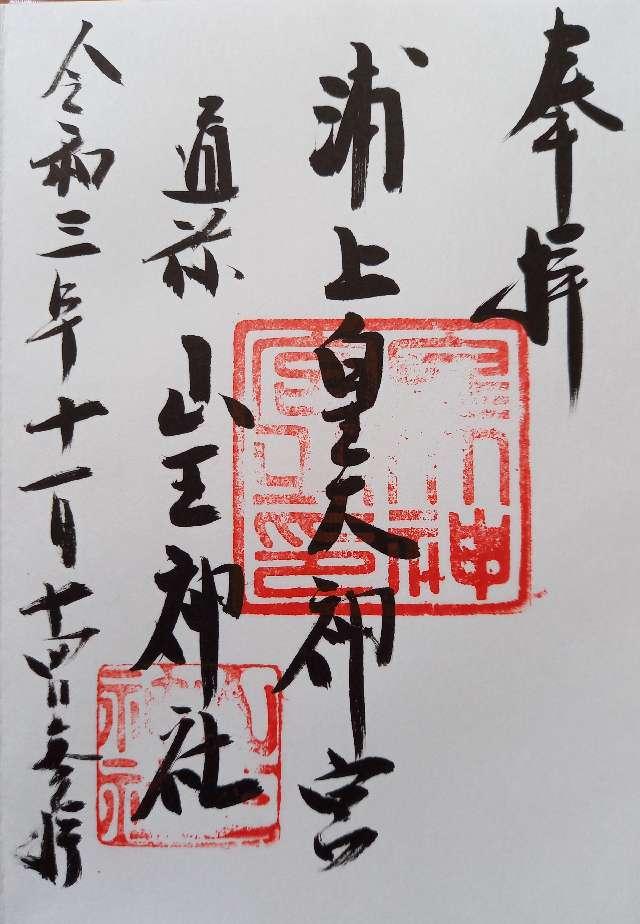 奉拝
浦上皇大神宮
道祢山王神社
令和三年十一月十四日参拝